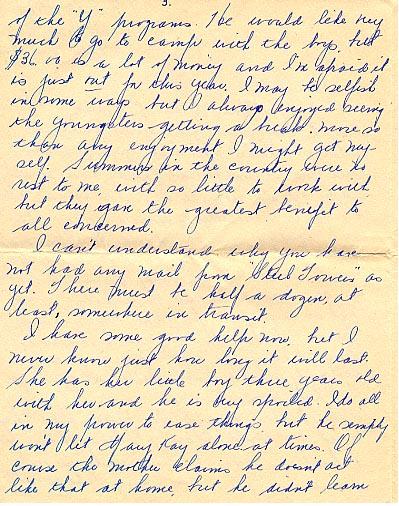 3.
of the "Y" programs. He would like very
much to go to camp with the boys, but
$36.00 is a lot of money and I'm afraid it
is just out for this year. I may be selfish
in some ways but I always enjoyed seeing
the youngsters getting a break, more so
than any enjoyment I might get my-
self. Summers in the country were no
rest to me, with so little to work with
but they gave the greatest benefit to
all concerned.
I can't understand why you have
not had any mail from "Steel Towers" as
yet. There must be half a dozen, at
least, somewhere in transit.
I have some good help now, but I
never know just how long it will last.
She has her little boy three years old
with her and he is very spoiled. I do all
in my power to ease things, but he simply
won't let Kay alone at times. Of
course the mother claims he doesn't act
like that at home, but he didn't learn